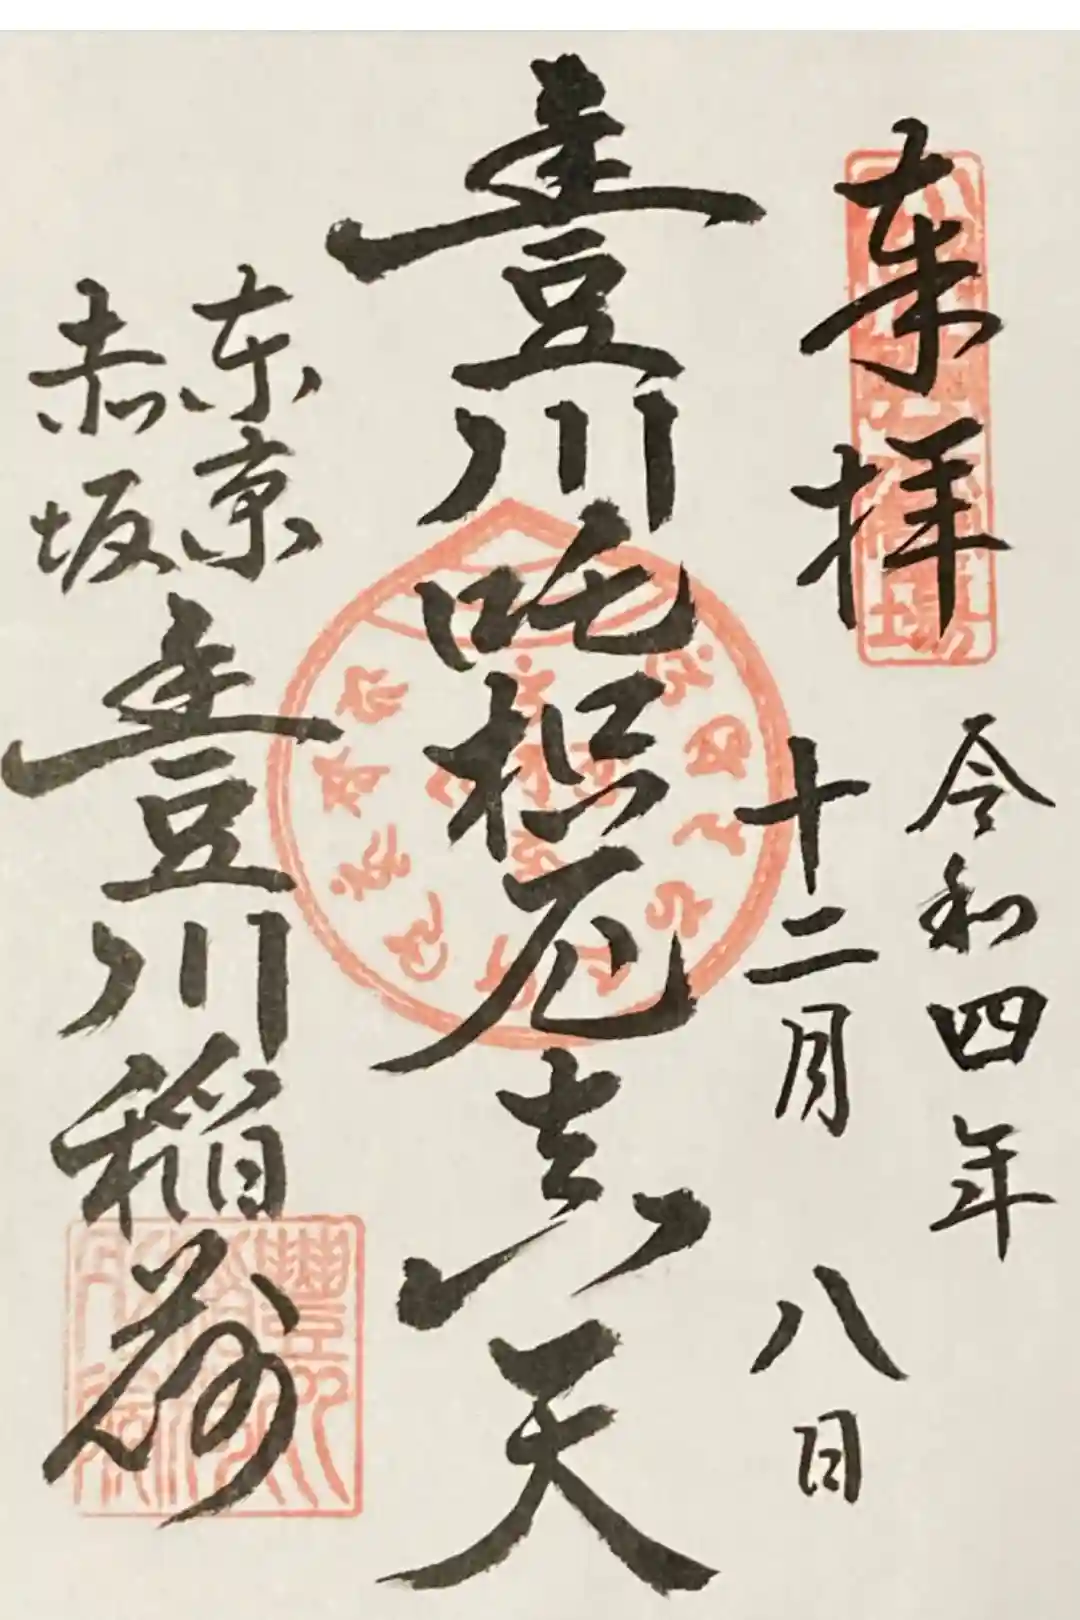 来拝
令和四年
十二月八日
豊川吒枳尼真天
東京
赤坂
豊川稲荷